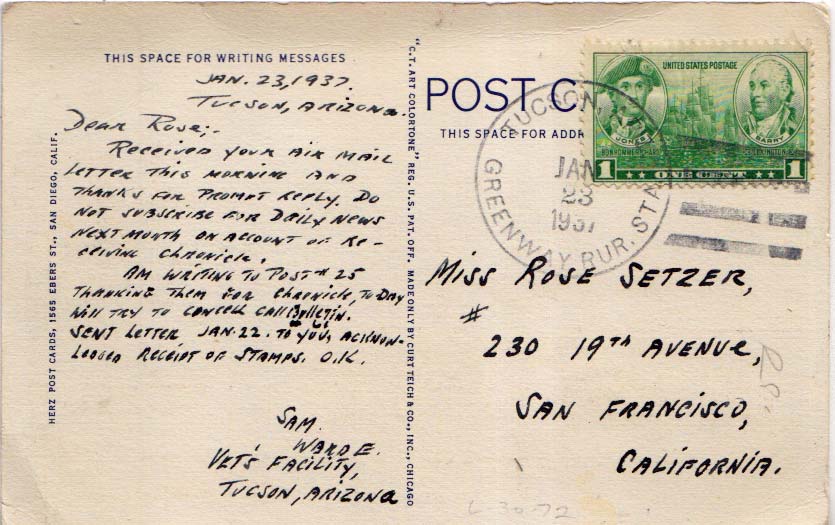 THIS SPACE FOR WRITING MESSAGES
JAN. 23, 1937.
TUCSON, ARIZONA.
Dear Rose;.
RECEIVED YOUR AIR MAIL
LETTER THIS MORNING AND
THANKS FOR PROMPT REPLY. DO
NOT SUBSCRIBE FOR DAILY NEWS
NEXT MONTH ON ACCOUNT OF RE-
CEIVING CHRONICLE.
AM WRITING TO POST # 25
THANKING THEM FOR CHRONICLE, TO-DAY
WILL TRY TO CANCELL CALL Bulletin.
SENT LETTER JAN. 22. TO YOU, ACKNOW-
LEDGED RECEIPT OF STAMPS. O.K.
SAM.
WARD E.
VET'S FACILITY,
TUCSON, ARIZONA
HERZ POST CARDS, 1565 EBERS ST., SAN DIEGO, CALIF.
"C.T. ART COLORTONE" REG. U.S. PAT. OFF. MADE ONLY BY CURT TEICH & CO., INC., CHICAGO
POST C
THIS SPACE FOR ADDR
UNITED STATES POSTAGE
JONES
BARRY
BONHOMME RICHARD
1 ONE CENT 1
TUCSON,
JAN
23
1937
GREENWAY RUR. STA
MISS ROSE SETZER,
#
230 19TH AVENUE,
SAN FRANCISCO,
CALIFORNIA.